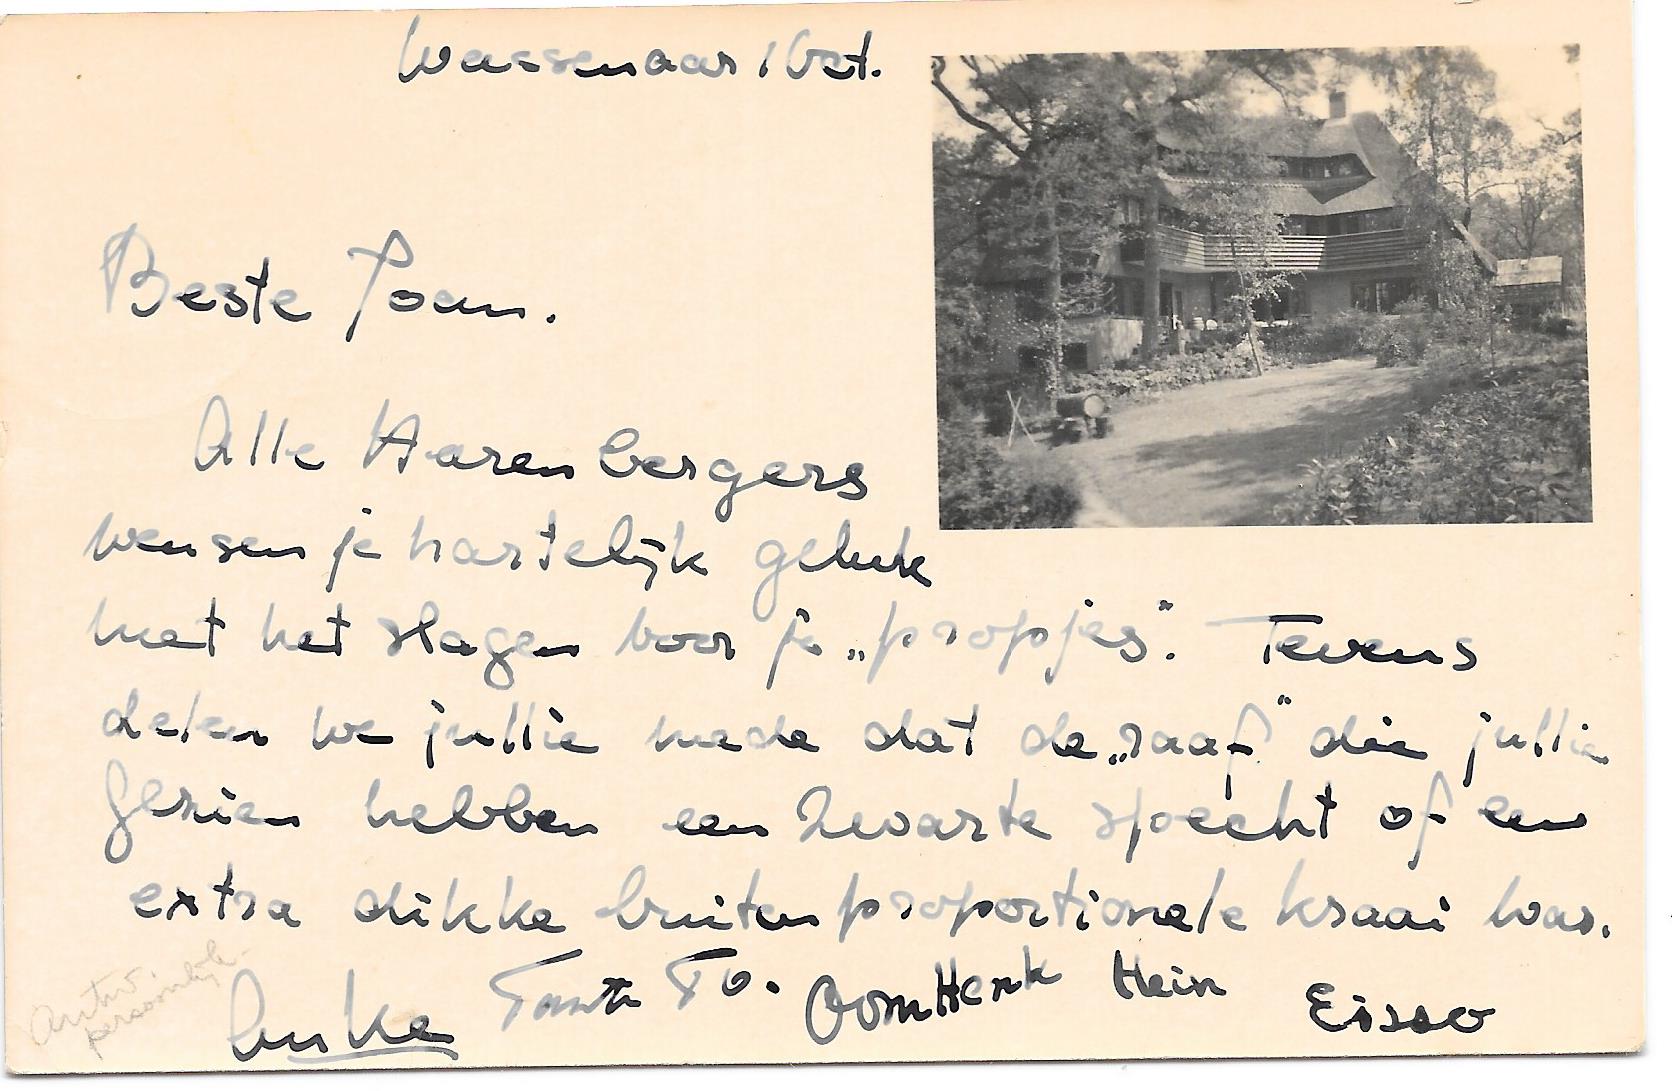 Wassenaar 1 Oct.
Beste Joan.
Alle Harenbergers
wensen je hartelijk geluk
met het slagen voor je „propjes”. Tevens
delen we jullie mede dat de „raaf” die jullie
gezien hebben een zwarte specht of een
extra dikke buiten proportionele kraai was.
Tante To. Oom Henk Hein Eisso
Anke
antw.
persoonlijk